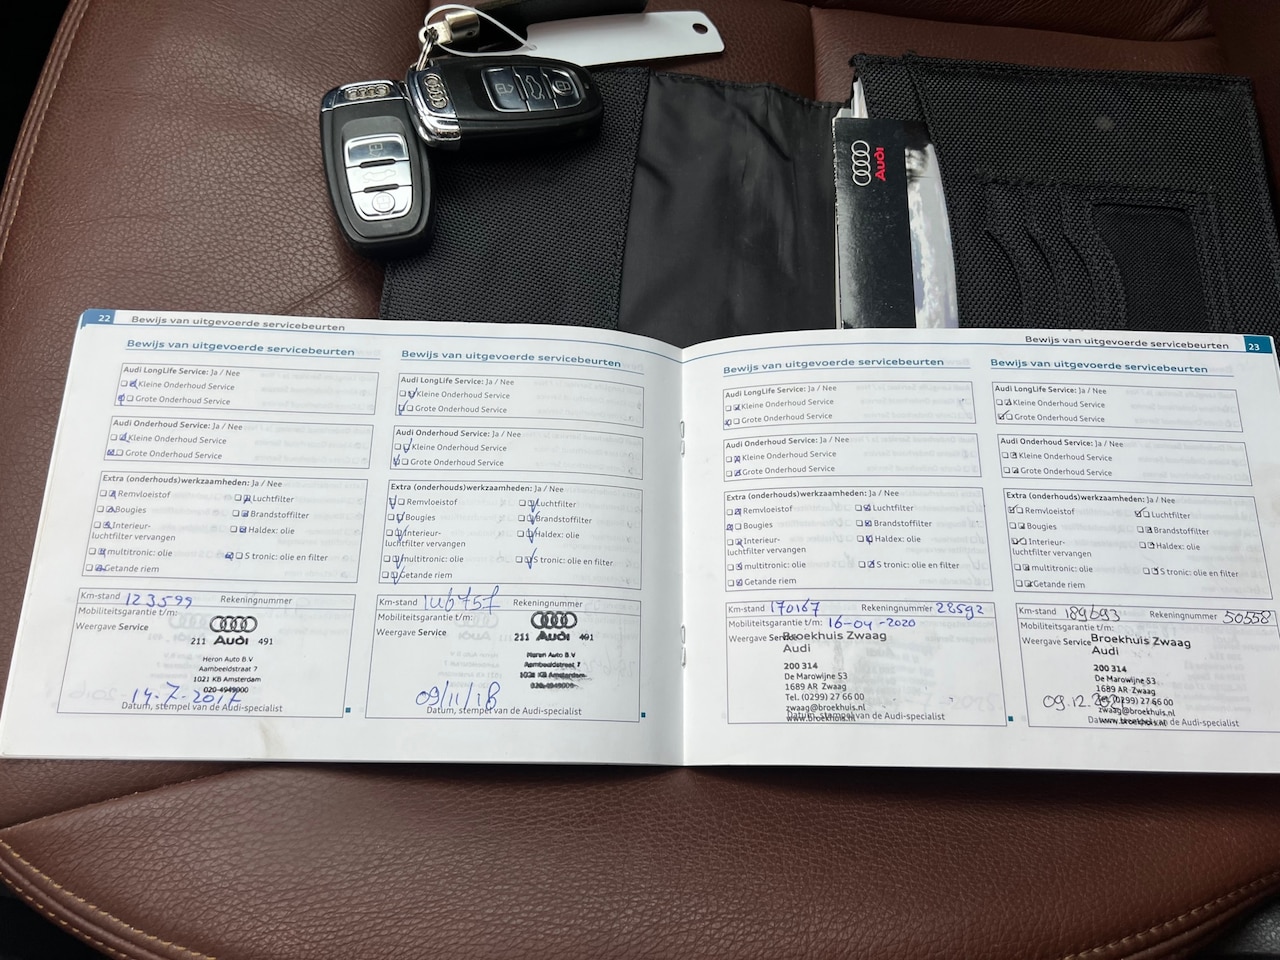 Audi
22
Bewijs van uitgevoerde servicebeurten
Bewijs van uitgevoerde servicebeurten
Audi LongLife Service: Ja / Nee
Kleine Onderhoud Service
Grote Onderhoud Service
Audi Onderhoud Service: Ja / Nee
Kleine Onderhoud Service
Grote Onderhoud Service
Extra (onderhouds)werkzaamheden: Ja / Nee
Remvloeistof
Luchtfilter
Bougies
Brandstoffilter
Interieur-
luchtfilter vervangen
Haldex: olie
multitronic: olie
S tronic: olie en filter
Getande riem
Km-stand 123599 Rekeningnummer
Mobiliteitsgarantie t/m:
Weergave Service
211 Audi 491
Heron Auto B.V
Aambeeldstraat 7
1021 KB Amsterdam
020-4949000
14-7-2017
Datum, stempel van de Audi-specialist
Bewijs van uitgevoerde servicebeurten
Audi LongLife Service: Ja / Nee
Kleine Onderhoud Service
Grote Onderhoud Service
Audi Onderhoud Service: Ja / Nee
Kleine Onderhoud Service
Grote Onderhoud Service
Extra (onderhouds)werkzaamheden: Ja / Nee
Remvloeistof
Luchtfilter
Bougies
Brandstoffilter
Interieur-
luchtfilter vervangen
Haldex: olie
multitronic: olie
S tronic: olie en filter
Getande riem
Km-stand 146757 Rekeningnummer
Mobiliteitsgarantie t/m:
Weergave Service
211 Audi 491
Heron Auto B.V
Aambeeldstraat 7
1021 KB Amsterdam
020-4949000
09/11/18
Datum, stempel van de Audi-specialist
Bewijs van uitgevoerde servicebeurten
23
Bewijs van uitgevoerde servicebeurten
Audi LongLife Service: Ja / Nee
Kleine Onderhoud Service
Grote Onderhoud Service
Audi Onderhoud Service: Ja / Nee
Kleine Onderhoud Service
Grote Onderhoud Service
Extra (onderhouds)werkzaamheden: Ja / Nee
Remvloeistof
Luchtfilter
Bougies
Brandstoffilter
Interieur-
luchtfilter vervangen
Haldex: olie
multitronic: olie
S tronic: olie en filter
Getande riem
Km-stand 170167 Rekeningnummer 28592
Mobiliteitsgarantie t/m: 16-04-2020
Weergave Service
Broekhuis Zwaag
Audi
200 314
De Marowijne 53
1689 AR Zwaag
Tel. (0299) 27 66 00
zwaag@broekhuis.nl
www.broekhuis.nl
Datum, stempel van de Audi-specialist
Bewijs van uitgevoerde servicebeurten
Audi LongLife Service: Ja / Nee
Kleine Onderhoud Service
Grote Onderhoud Service
Audi Onderhoud Service: Ja / Nee
Kleine Onderhoud Service
Grote Onderhoud Service
Extra (onderhouds)werkzaamheden: Ja / Nee
Remvloeistof
Luchtfilter
Bougies
Brandstoffilter
Interieur-
luchtfilter vervangen
Haldex: olie
multitronic: olie
S tronic: olie en filter
Getande riem
Km-stand 189693 Rekeningnummer 50558
Mobiliteitsgarantie t/m:
Weergave Service
Broekhuis Zwaag
Audi
200 314
De Marowijne 53
1689 AR Zwaag
Tel. (0299) 27 66 00
09.12.
zwaag@broekhuis.nl
www.broekhuis.nl
Datum, stempel van de Audi-specialist